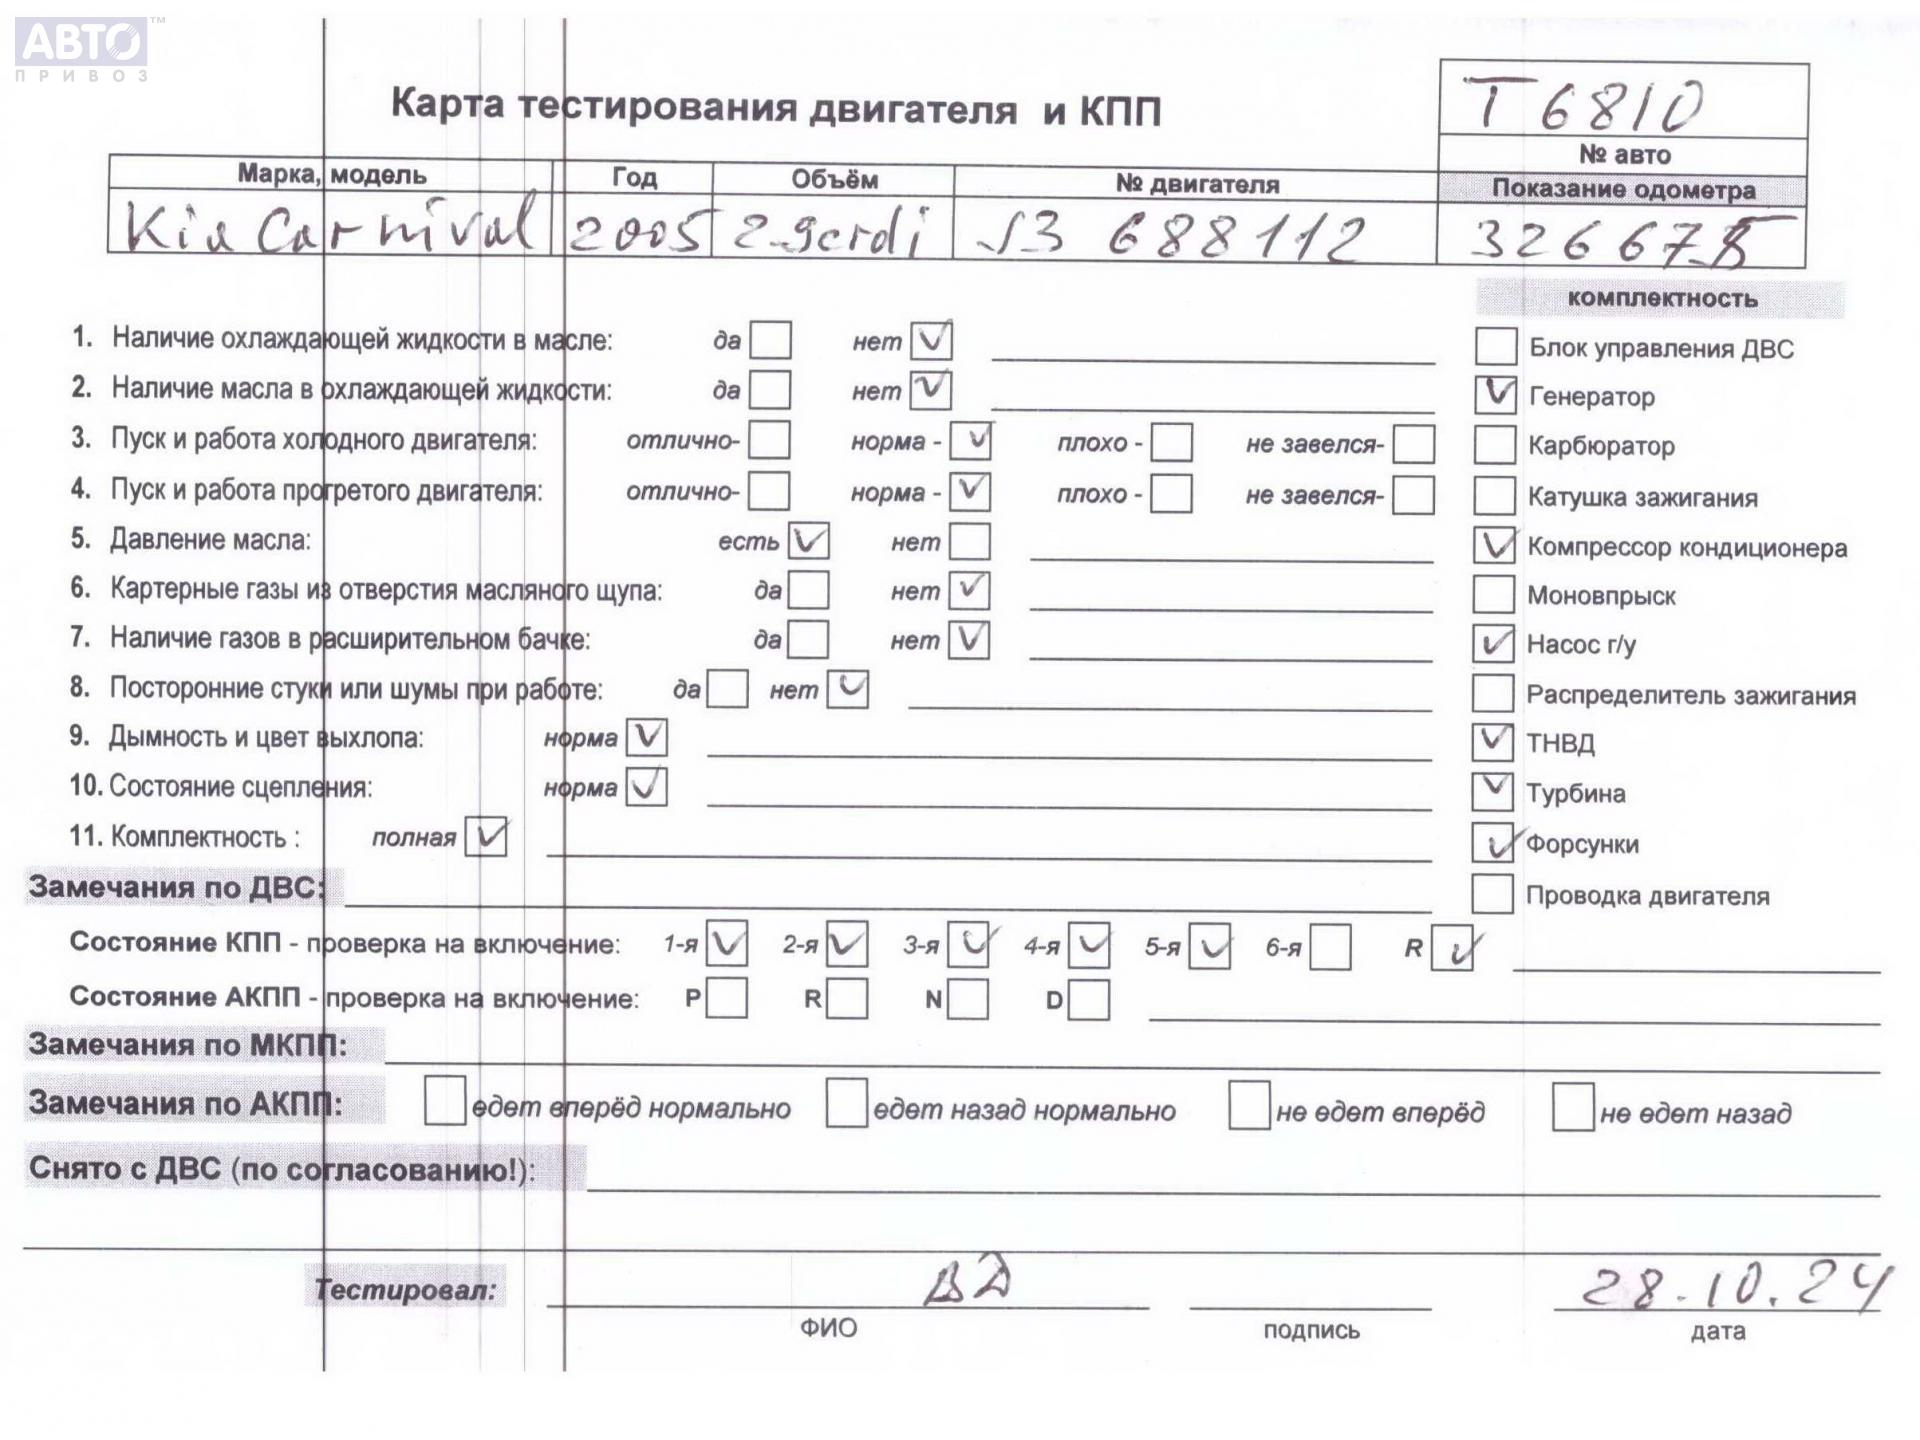 АВТО™
ПРИВОЗ
Карта тестирования двигателя и КПП
Т 6810
№ авто
Марка, модель Год Объём № двигателя Показание одометра
Kia Carnival 2005 2.9crdi J3 688112
комплектность
1. Наличие охлаждающей жидкости в масле: да нет ✓ Блок управления ДВС
2. Наличие масла в охлаждающей жидкости: да нет ✓ ✓ Генератор
3. Пуск и работа холодного двигателя: отлично- норма - ✓ плохо - не завелся- Карбюратор
4. Пуск и работа прогретого двигателя: отлично- норма - ✓ плохо - не завелся- Катушка зажигания
5. Давление масла: есть ✓ нет ✓ Компрессор кондиционера
6. Картерные газы из отверстия масляного щупа: да нет ✓ Моновпрыск
7. Наличие газов в расширительном бачке: да нет ✓ ✓ Насос г/у
8. Посторонние стуки или шумы при работе: да нет ✓ Распределитель зажигания
9. Дымность и цвет выхлопа: норма ✓ ✓ ТНВД
10. Состояние сцепления: норма ✓ ✓ Турбина
11. Комплектность : полная ✓ ✓ Форсунки
Замечания по ДВС: Проводка двигателя
Состояние КПП - проверка на включение: 1-я ✓ 2-я ✓ 3-я ✓ 4-я ✓ 5-я ✓ 6-я R ✓
Состояние АКПП - проверка на включение: P R N D
Замечания по МКПП:
Замечания по АКПП: едет вперёд нормально едет назад нормально не едет вперёд не едет назад
Снято с ДВС (по согласованию!):
Тестировал: 28.10.24
ФИО подпись дата